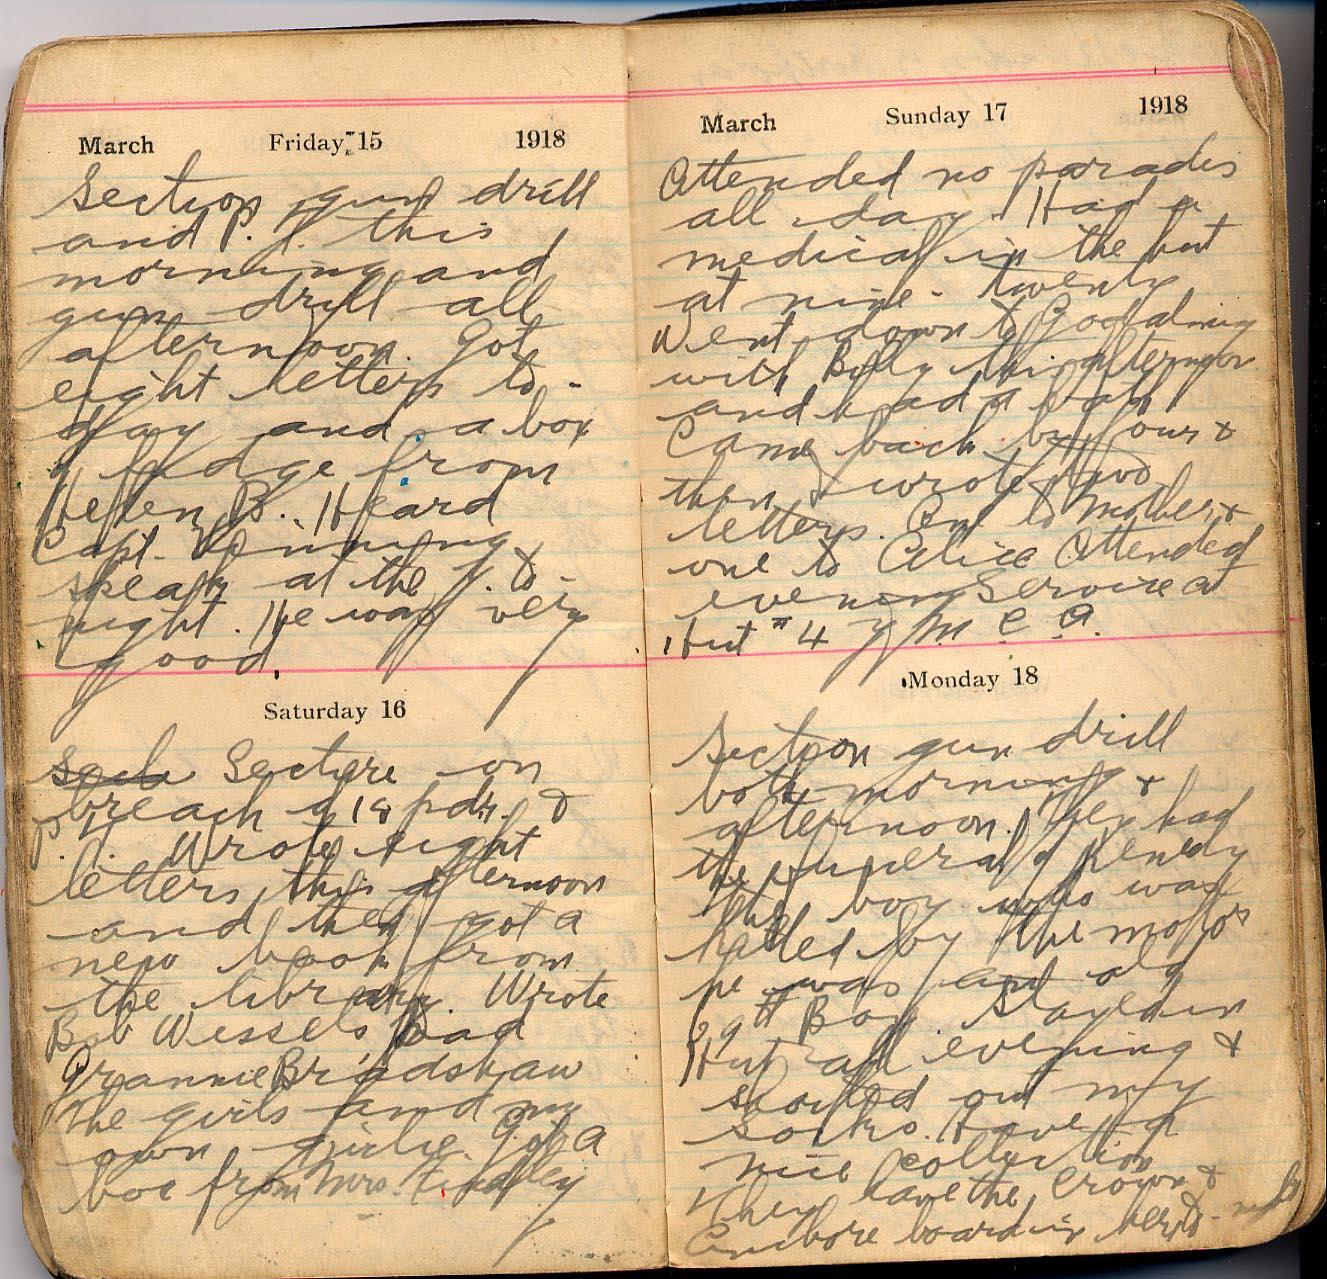 March Friday 15 1918
Section gun drill
and P. T. this
morning and
gun drill all
afternoon. Got
eight letters to-
day and a box
of fudge from
Helen B. Heard
Capt.
speak at the Y. to-
night. He was very
good.
Saturday 16
Lecture on
breach of 18 pdr. &
P. T. Wrote eight
letters this afternoon
and then got a
new book from
the library. Wrote
Bob Wessels Dad
Grannie Bradshaw
the girls and my
own girlie. Got a
box from Mrs.
March Sunday 17 1918
Attended no parades
all day. Had a
medical in the hut
at nine-twenty
Went down to Godalming
with Billy this afternoon
and had a
Came back by four &
then wrote two
letters. One to Mother &
one to Alice Attended
evening Service at
Hut #4 Y M C A.
Monday 18
Section gun drill
both morning &
afternoon. They had
the funeral of Kenedy
the boy who was
killed by the motor
he was an old
Boy. Stayed in
Hut all evening &
sorted out my
socks. Have a
nice collection
They have the Crown &
Anchore board in here to-